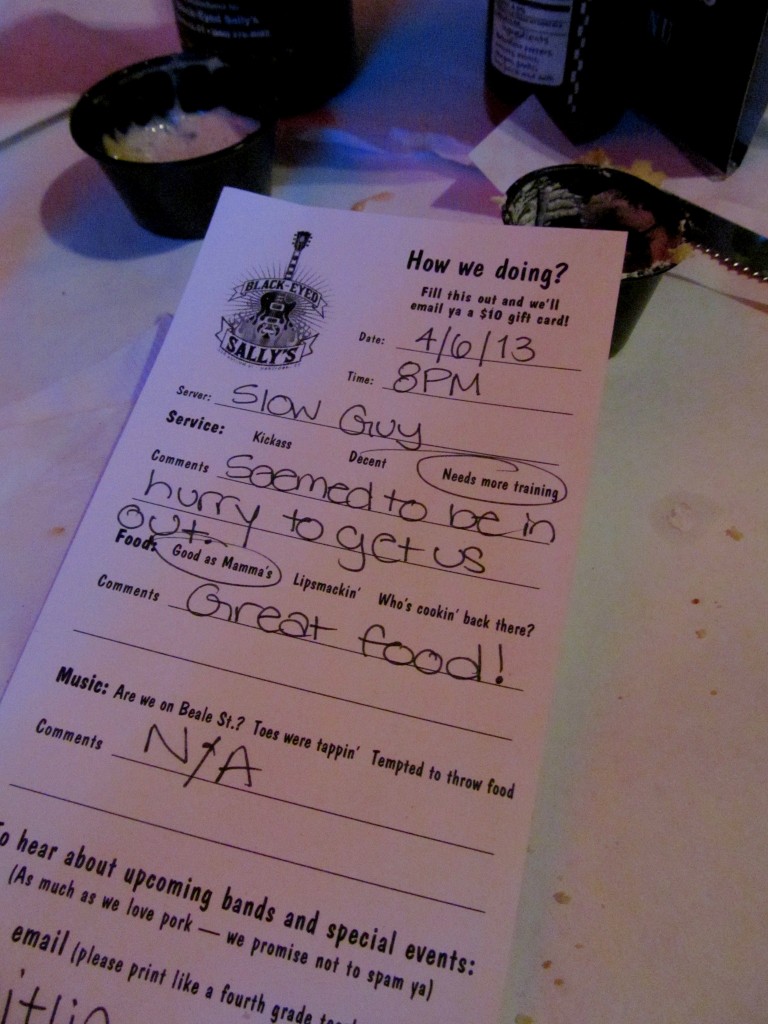 BLACK-EYED
SALLY'S
How we doing?
Fill this out and we'll
email ya a $10 gift card!
Date: 4/6/13
Time: 8PM
Server: Slow Guy
Service: Kickass Decent Needs more training
Comments Seemed to be in
hurry to get us
out.
Food: Good as Mamma's Lipsmackin' Who's cookin' back there?
Comments Great food!
Music: Are we on Beale St.? Toes were tappin' Tempted to throw food
Comments N/A
To hear about upcoming bands and special events:
(As much as we love pork — we promise not to spam ya)
email (please print like a fourth grade